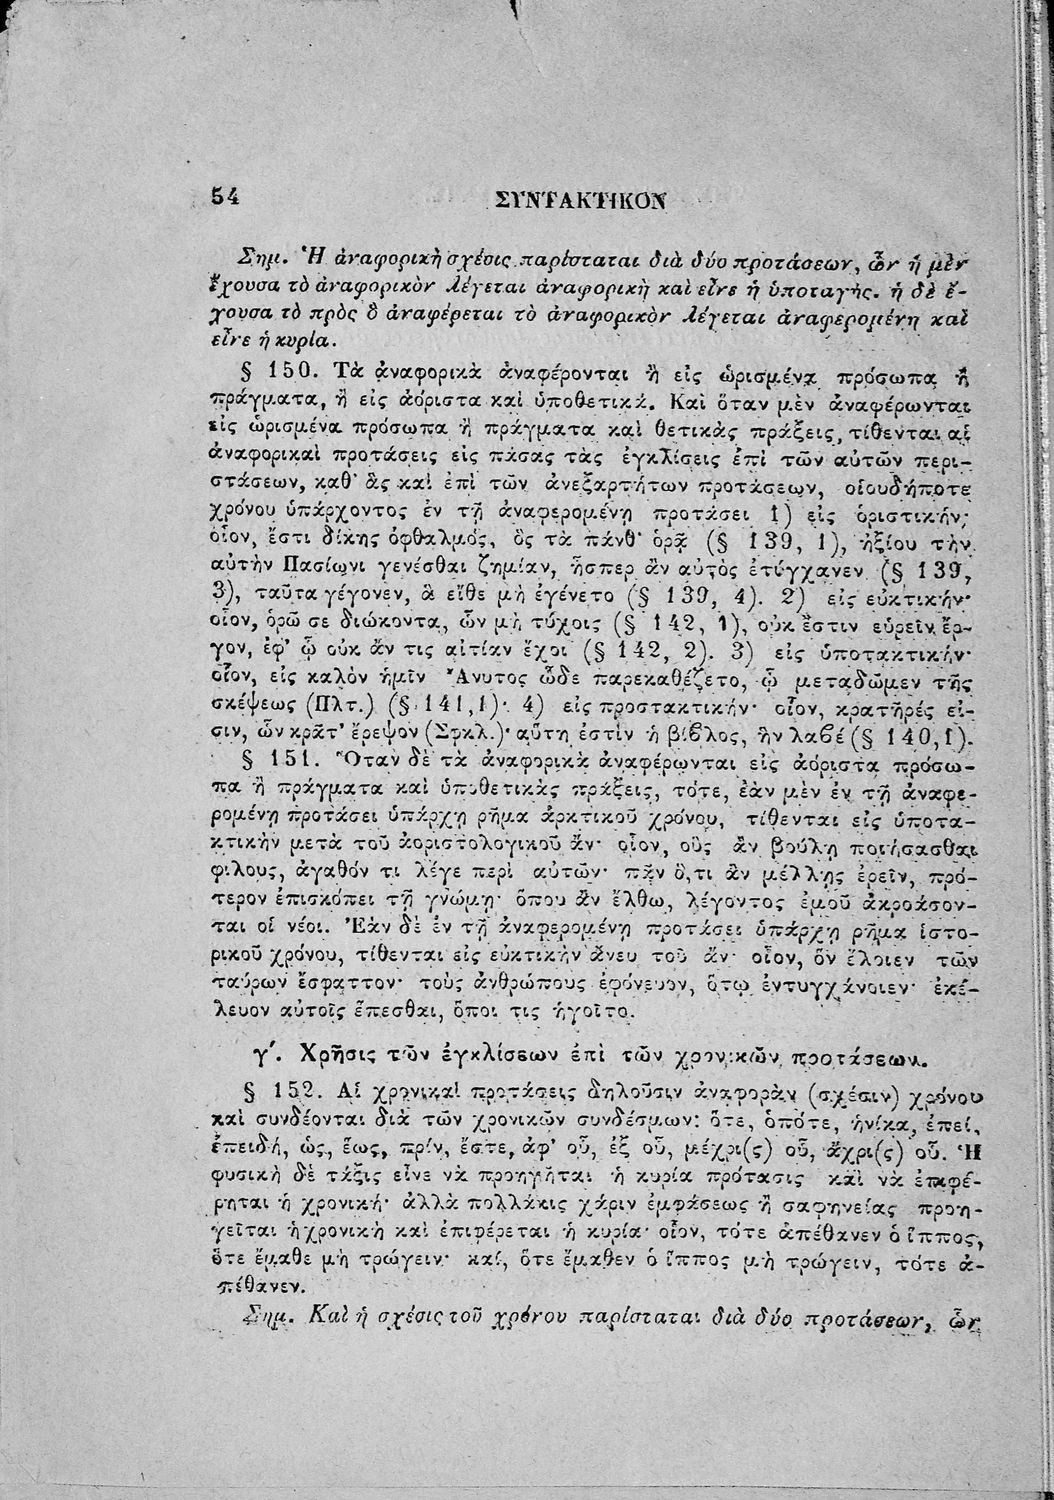 54 ΣΥΝΤΑΚΤΙΚΟΝ
Σημ. Ἡ ἀναφορικὴ σχέσις παρίσταται διὰ δύο προτάσεων, ὧν ἡ μὲν
ἔχουσα τὸ ἀναφορικὸν λέγεται ἀναφορικὴ καὶ εἶνε ἡ ὑποταγής. ἡ δὲ ἔ-
χουσα τὸ πρὸς ὃ ἀναφέρεται τὸ ἀναφορικὸν λέγεται ἀναφερομένη καὶ
εἶνε ἡ κυρία.
§ 150. Τὰ ἀναφορικὰ ἀναφέρονται ἢ εἰς ὡρισμένα πρόσωπα ἢ
πράγματα, ἢ εἰς ἀόριστα καὶ ὑποθετικά. Καὶ ὅταν μὲν ἀναφέρωνται
εἰς ὡρισμένα πρόσωπα ἢ πράγματα καὶ θετικὰς πράξεις, τίθενται αἱ
ἀναφορικαὶ προτάσεις εἰς πάσας τὰς ἐγκλίσεις ἐπὶ τῶν αὐτῶν περι-
στάσεων, καθ' ἃς καὶ ἐπὶ τῶν ἀνεξαρτήτων προτάσεων, οἱουδήποτε
χρόνου ὑπάρχοντος ἐν τῇ ἀναφερομένῃ προτάσει 1) εἰς ὁριστικήν·
οἷον, ἔστι δίκης ὀφθαλμός, ὃς τὰ πάνθ' ὁρᾷ (§ 139, 1), ἠξίου τὴν
αὐτὴν Πασίωνι γενέσθαι ζημίαν, ἧσπερ ἂν αὐτὸς ἐτύγχανεν (§ 139,
3), ταῦτα γέγονεν, ἃ εἴθε μὴ ἐγένετο (§ 139, 4). 2) εἰς εὐκτικήν·
οἷον, ὁρῶ σε διώκοντα, ὧν μὴ τύχοις (§ 142, 1), οὐκ ἔστιν εὑρεῖν ἔρ-
γον, ἐφ' ᾧ οὐκ ἄν τις αἰτίαν ἔχοι (§ 142, 2). 3) εἰς ὑποτακτικήν·
οἷον, εἰς καλὸν ἡμῖν Ἄνυτος ὧδε παρεκαθέζετο, ᾧ μεταδῶμεν τῆς
σκέψεως (Πλτ.) (§ 141,1)· 4) εἰς προστακτικήν· οἷον, κρατῆρές εἰ-
σιν, ὧν κρᾶτ' ἔρεψον (Σφκλ.)· αὕτη ἐστὶν ἡ βίβλος, ἣν λαβέ (§ 140,1).
§ 151. Ὅταν δὲ τὰ ἀναφορικὰ ἀναφέρωνται εἰς ἀόριστα πρόσω-
πα ἢ πράγματα καὶ ὑποθετικὰς πράξεις, τότε, ἐὰν μὲν ἐν τῇ ἀναφε-
ρομένῃ προτάσει ὑπάρχῃ ρῆμα ἀρκτικοῦ χρόνου, τίθενται εἰς ὑποτα-
κτικὴν μετὰ τοῦ ἀοριστολογικοῦ ἄν· οἷον, οὓς ἂν βούλῃ ποιήσασθαι
φιλους, ἀγαθόν τι λέγε περὶ αὐτῶν· πᾶν ὅ,τι ἂν μέλλῃς ἐρεῖν, πρό-
τερον ἐπισκόπει τῇ γνώμῃ· ὅπου ἂν ἔλθω, λέγοντος ἐμοῦ ἀκροάσον-
ται οἱ νέοι. Ἐὰν δὲ ἐν τῇ ἀναφερομένῃ προτάσει ὑπάρχῃ ρῆμα ἱστο-
ρικοῦ χρόνου, τίθενται εἰς εὐκτικὴν ἄνευ τοῦ ἄν· οἷον, ὃν ἕλοιεν τῶν
ταύρων ἔσφαττον· τοὺς ἀνθρώπους ἐφόνευον, ὅτῳ ἐντυγχάνοιεν· ἐκέ-
λευον αὐτοῖς ἕπεσθαι, ὅποι τις ἡγοῖτο.
γ'. Χρῆσις τῶν ἐγκλίσεων ἐπὶ τῶν χρονικῶν προτάσεων.
§ 152. Αἱ χρονικαὶ προτάσεις δηλοῦσιν ἀναφορὰν (σχέσιν) χρόνου
καὶ συνδέονται διὰ τῶν χρονικῶν συνδέσμων: ὅτε, ὁπότε, ἡνίκα, ἐπεί,
ἐπειδή, ὡς, ἕως, πρίν, ἔστε, ἀφ' οὗ, ἐξ οὗ, μέχρι(ς) οὗ, ἄχρι(ς) οὗ. Ἡ
φυσικὴ δὲ τάξις εἶνε νὰ προηγῆται ἡ κυρία πρότασις καὶ νὰ ἐπιφέ-
ρηται ἡ χρονική· ἀλλὰ πολλάκις χάριν ἐμφάσεως ἢ σαφηνείας προη-
γεῖται ἡ χρονικὴ καὶ ἐπιφέρεται ἡ κυρία· οἷον, τότε ἀπέθανεν ὁ ἵππος,
ὅτε ἔμαθε μὴ τρώγειν· καί, ὅτε ἔμαθεν ὁ ἵππος μὴ τρώγειν, τότε ἀ-
πέθανεν.
Σημ. Καὶ ἡ σχέσις τοῦ χρόνου παρίσταται διὰ δύο προτάσεων, ὧν